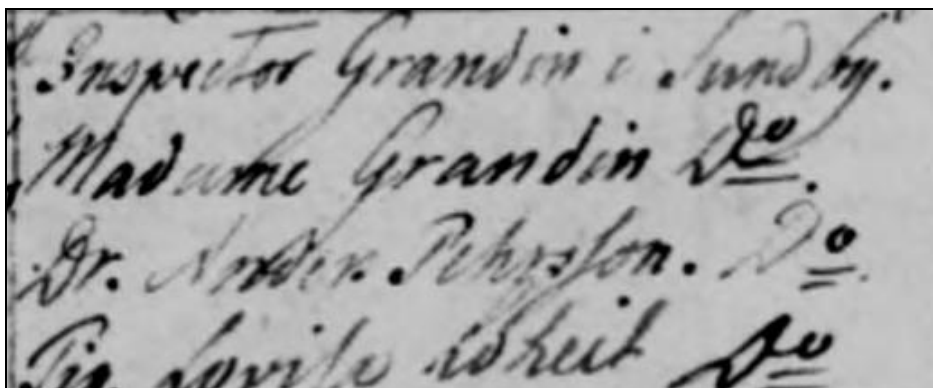 Inspector Grandin i Sundby.
Madame Grandin Do.
Dr. Anders Pehrsson. Do.
Pig. Lovisa Do